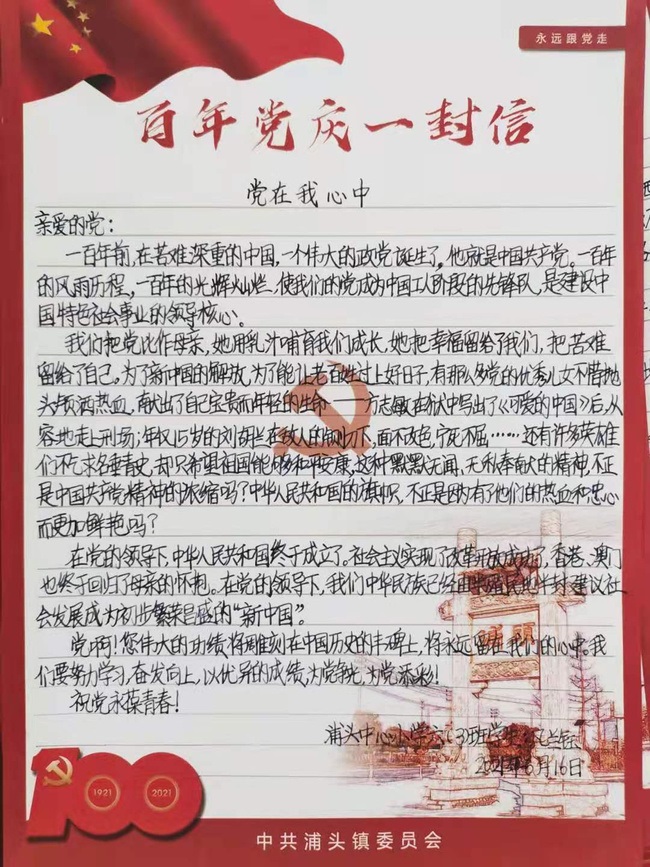 永远跟党走
百年党庆一封信
党在我心中
亲爱的党：
一百年前,在苦难深重的中国,一个伟大的政党诞生了,他就是中国共产党。一百年
的风雨历程,一百年的光辉灿烂,使我们的党成为中国工人阶段的先锋队,是建设中
国特色社会事业的领导核心。
我们把党比作母亲,她用乳汁哺育我们成长,她把幸福留给了我们,把苦难
留给了自己。为了新中国的解放,为了能让老百姓过上好日子,有那么多党的优秀儿女不惜抛
头颅洒热血,献出了自己宝贵而年轻的生命——方志敏在狱中写出了《可爱的中国》后,从
容地走上刑场;年仅15岁的刘胡兰在敌人的铡刀下,面不改色,宁死不屈……还有许多英雄
们不求名垂青史,却只希望祖国能够和平安康,这种默默无闻、无私奉献的精神,不正
是中国共产党精神的浓缩吗?中华人民共和国的旗帜,不正是因为有了他们的热血和忠心
而更加鲜艳吗?
在党的领导下,中华人民共和国终于成立了。社会主义实现了改革开放成功了,香港、澳门
也终于回归了母亲的怀抱。在党的领导下,我们中华民族已经由半殖民地半封建议社
会发展成为初步繁荣昌盛的“新中国”。
党啊!您伟大的功绩将雕刻在中国历史的丰碑上,将永远留在我们的心中。我
们要努力学习,奋发向上,以优异的成绩,为党争光,为党添彩!
祝党永葆青春!
浦头中心小学六(3)班学生
2021年6月16日
100
1921
2021
中共浦头镇委员会